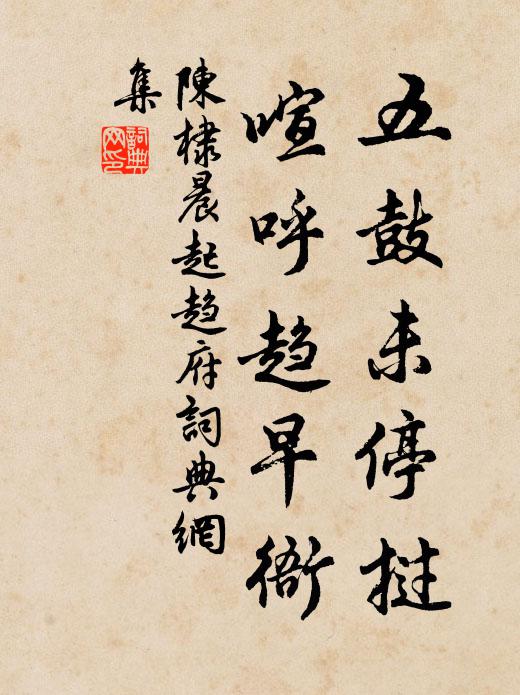 五鼓未停撾
喧呼趨早衙
陳棣晨起趨府詞典網
集
詞典
網印